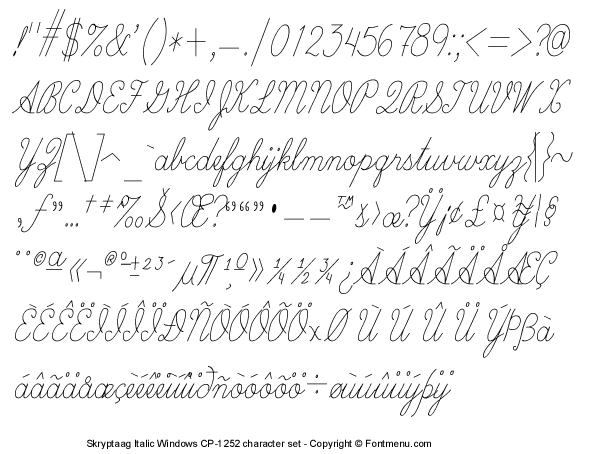 !"#$%&'()*+,-./0123456789:;<=>?@
ABCDEFGHIJKLMNOPQRSTUVWX
YZ[\]^_`abcdefghijklmnopqrstuvwxyz{|}~
‚ƒ„…†‡ˆ‰Š‹Œ?‘’“”•–—˜™š›œ?Ÿ¡¢£¤¥¦§
¨©ª«¬®¯°±²³´µ¶·¸¹º»¼½¾¿ÀÁÂÃÄÅÆÇ
ÈÉÊËÌÍÎÏÐÑÒÓÔÕÖ×ØÙÚÛÜÝÞßà
áâãäåæçèéêëìíîïðñòóôõö÷øùúûüýþÿ
Skryptaag Italic Windows CP-1252 character set - Copyright © Fontmenu.com